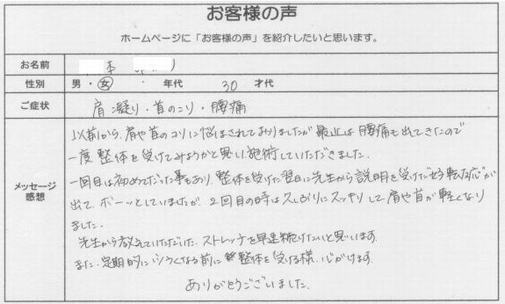 お客様の声
ホームページに「お客様の声」を紹介したいと思います。
お名前
性別 男・女 年代 30 才代
ご症状 肩凝り・首のこり・腰痛
メッセージ
感想
以前から、肩や首のコリに悩まされておりましたが最近は腰痛も出てきたので
一度整体を受けてみようかと思い施術していただきました。
一回目は初めてだった事もあり、整体を受けた翌日に先生から説明を受けた好転反応が
出て、ボーッとしていましたが、2回目の時は久しぶりにスッキリして肩や首が軽くなり
ました。
先生から教えていただいた、ストレッチを早速続けたいと思います。
また、定期的に くなる前に整体を受ける様、心がけます。
ありがとうございました。